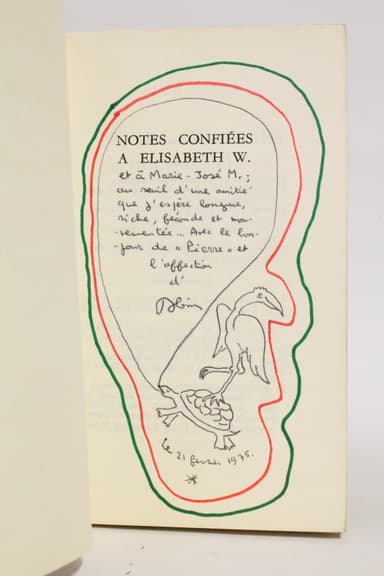 NOTES CONFIÉES
A ELISABETH W.
et à Marie-José M. ;
au seuil d'une amitié
que j'espère longue,
riche, féconde et mou-
-vementée... Avec le bon-
-jour de « Pierre » et
l'affection
d'
Le 21 février 1975.